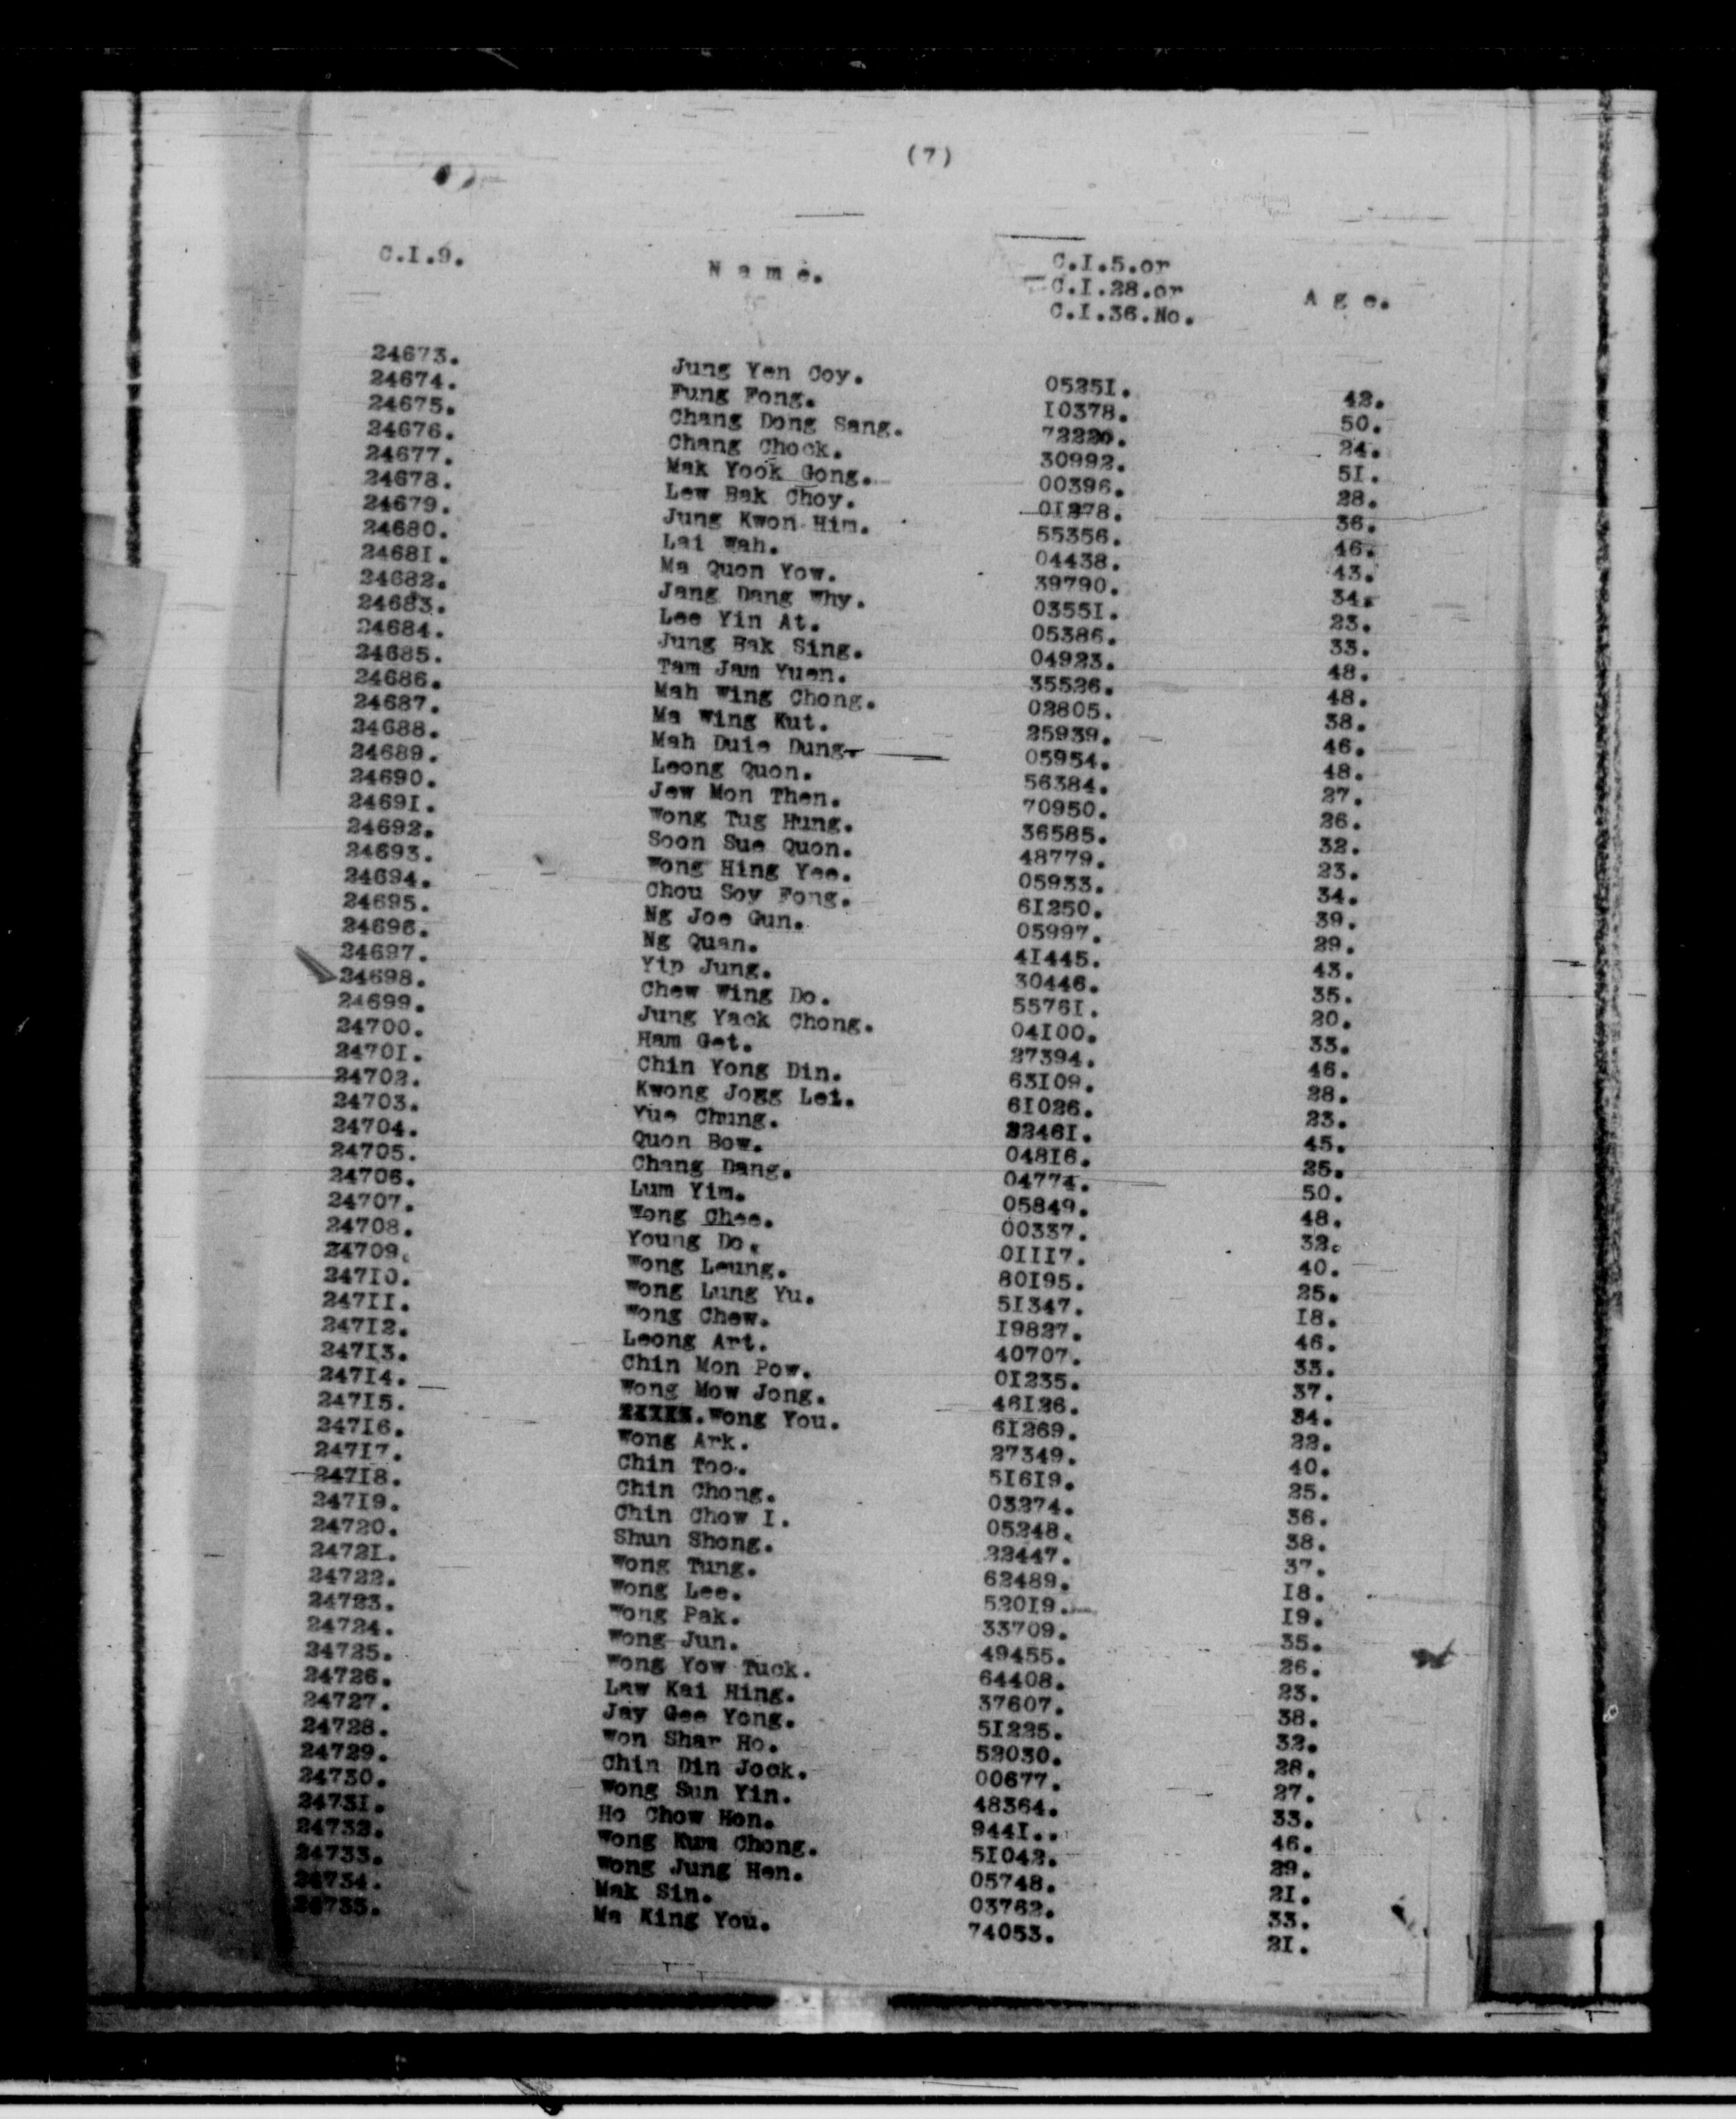 (7)
C.I.9. N a m e. C.I.5.or
C.I.28.or A g e.
C.I.36.No.
24673. Jung Yen Coy. 0525I. 42.
24674. Fung Fong. I0378. 50.
24675. Chang Dong Sang. 72220. 24.
24676. Chang Chock. 30992. 5I.
24677. Mak Yook Gong. 00396. 28.
24678. Lew Bak Choy. 0I278. 36.
24679. Jung Kwon Him. 55356. 46.
24680. Lai Wah. 04438. 43.
2468I. Ma Quon Yow. 39790. 34.
24682. Jang Dang Why. 0355I. 23.
24683. Lee Yin At. 05386. 33.
24684. Jung Bak Sing. 04923. 48.
24685. Tam Jam Yuen. 35526. 48.
24686. Mah Wing Chong. 02805. 38.
24687. Ma Wing Kut. 25939. 46.
24688. Mah Duie Dung. 05954. 48.
24689. Leong Quon. 56384. 27.
24690. Jew Mon Then. 70950. 26.
2469I. Wong Tug Hung. 36585. 32.
24692. Soon Sue Quon. 48779. 23.
24693. Wong Hing Yee. 05933. 34.
24694. Chou Soy Fong. 6I250. 39.
24695. Ng Joe Gun. 05997. 29.
24696. Ng Quan. 4I445. 43.
24697. Yip Jung. 30446. 35.
24698. Chew Wing Do. 5576I. 20.
24699. Jung Yack Chong. 04I00. 33.
24700. Ham Get. 27394. 46.
2470I. Chin Yong Din. 63I09. 28.
24702. Kwong Jogg Lei. 6I026. 23.
24703. Yue Chung. 2246I. 45.
24704. Quon Bow. 048I6. 25.
24705. Chang Dang. 04774. 50.
24706. Lum Yim. 05849. 48.
24707. Wong Chee. 00337. 32.
24708. Young Do. 0III7. 40.
24709. Wong Leung. 80I95. 25.
247I0. Wong Lung Yu. 5I347. I8.
247II. Wong Chew. I9827. 46.
247I2. Leong Art. 40707. 33.
247I3. Chin Mon Pow. 0I235. 37.
247I4. Wong Mow Jong. 46I26. 34.
247I5. Wong You. 6I269. 22.
247I6. Wong Ark. 27349. 40.
247I7. Chin Too. 5I6I9. 25.
247I8. Chin Chong. 03274. 36.
247I9. Chin Chow I. 05248. 38.
24720. Shun Shong. 22447. 37.
2472I. Wong Tung. 62489. I8.
24722. Wong Lee. 520I9. I9.
24723. Wong Pak. 33709. 35.
24724. Wong Jun. 49455. 26.
24725. Wong Yow Tuck. 64408. 23.
24726. Law Kai Hing. 37607. 38.
24727. Jay Gee Yong. 5I225. 32.
24728. Won Shar Ho. 52030. 28.
24729. Chin Din Jock. 00677. 27.
24730. Wong Sun Yin. 48364. 33.
2473I. Ho Chow Hon. 944I.. 46.
24732. Wong Kum Chong. 5I042. 29.
24733. Wong Jung Hen. 05748. 2I.
24734. Mak Sin. 03762. 33.
24735. Ma King You. 74053. 2I.